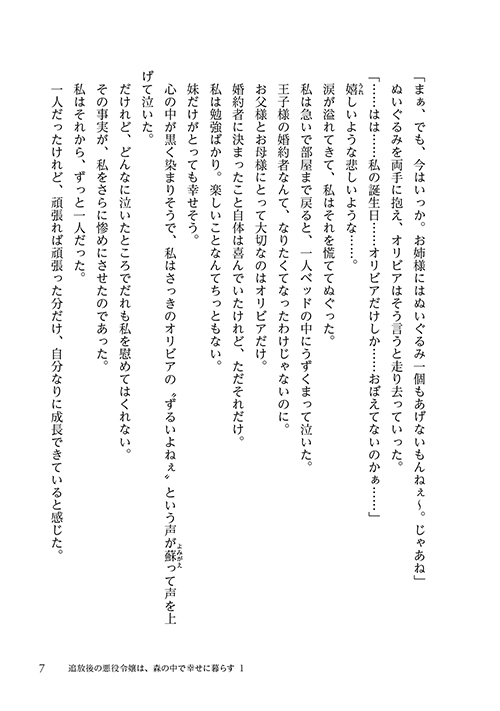 「まぁ、でも、今はいっか。お姉様にはぬいぐるみ一個もあげないもんねぇ〜。じゃあね」
ぬいぐるみを両手に抱え、オリビアはそう言うと走り去っていった。
「……はは……私の誕生日……オリビアだけしか……おぼえてないのかぁ……」
嬉しいような悲しいような……。
涙が溢れてきて、私はそれを慌ててぬぐった。
私は急いで部屋まで戻ると、一人ベッドの中にうずくまって泣いた。
王子様の婚約者なんて、なりたくてなったわけじゃないのに。
お父様とお母様にとって大切なのはオリビアだけ。
婚約者に決まったこと自体は喜んでいたけれど、ただそれだけ。
私は勉強ばかり。楽しいことなんてちっともない。
妹だけがとっても幸せそう。
心の中が黒く染まりそうで、私はさっきのオリビアの〝ずるいよねぇ〟という声が蘇って声を上
げて泣いた。
だけれど、どんなに泣いたところでだれも私を慰めてはくれない。
その事実が、私をさらに惨めにさせたのであった。
私はそれから、ずっと一人だった。
一人だったけれど、頑張れば頑張った分だけ、自分なりに成長できていると感じた。
7 追放後の悪役令嬢は、森の中で幸せに暮らす 1